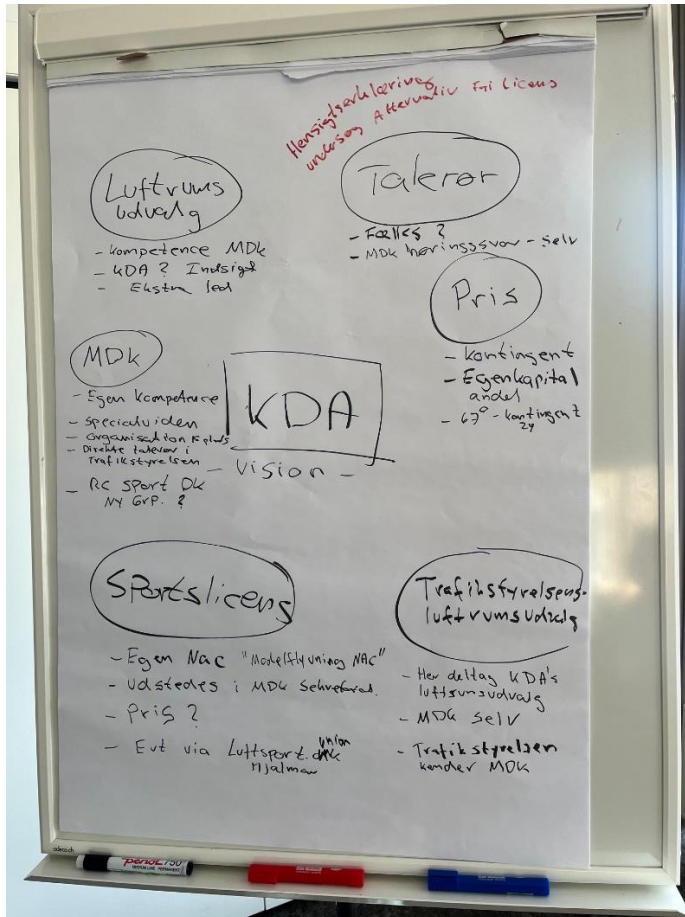 Hensigtserklæring
undersøg Alternativ FAI licens
Luftrums
udvalg
- Kompetence MDK
- KDA ? Indsigt
- Ekstra led
Talerør
- Fælles ?
- MDK høringssvar - selv
Pris
- Kontingent
- Egenkapital
andel
- 67° - kontingent
24
MDK
- Egen kompetence
- Specialviden
- Organisation
- Direkte talerør i
Trafikstyrelsen
- RC Sport DK
NY Grp. ?
KDA
- Vision -
Sportslicens
- Egen Nac "Modelflyvning NAC"
- Udstedes i MDK Sekretariat.
- Pris ?
- Evt via Luftsport.union
Hjalmar
Trafikstyrelsens-
luftrumsudvalg
- Her deltag KDA's
luftrumsudvalg
- MDK selv
- Trafikstyrelsen
kender MDK
penol 750
PERMANENT